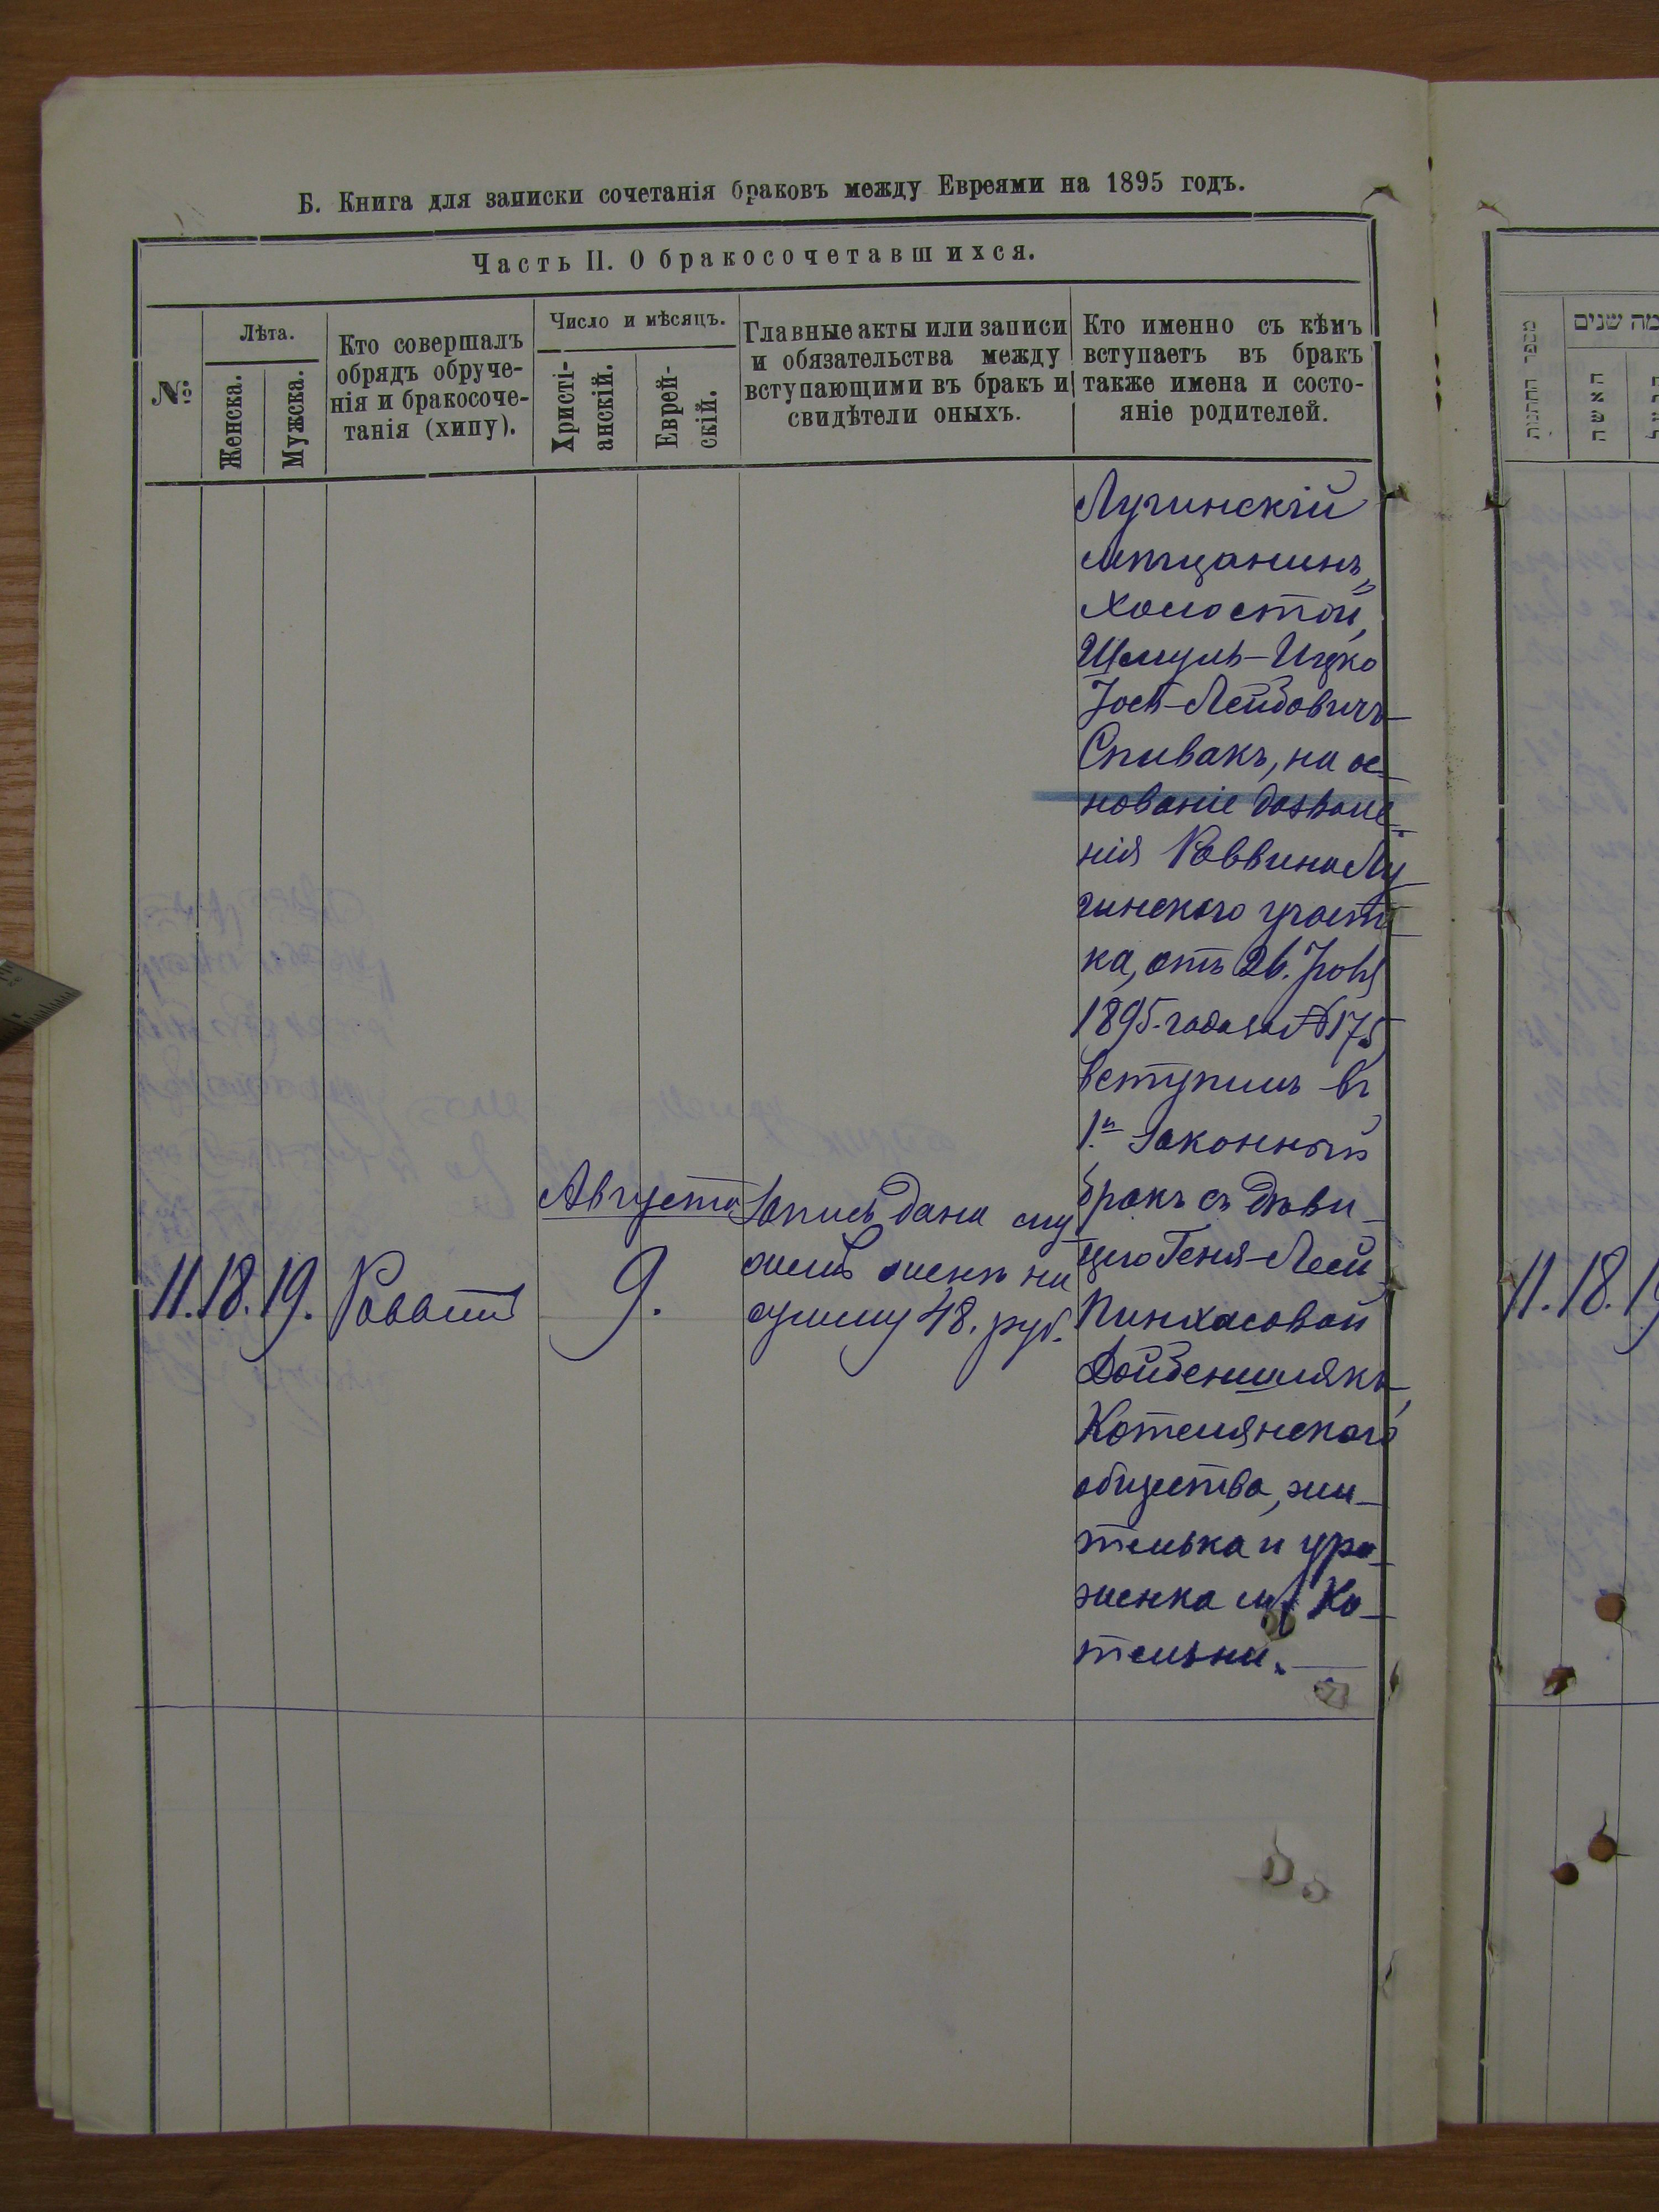 Б. Книга для записки сочетанія браковъ между Евреями на 1895 годъ.
Часть II. О бракосочетавшихся.
№
Лѣта.
Женска.
Мужска.
Кто совершалъ
обрядъ обруче-
нія и бракосоче-
танія (хипу).
Число и мѣсяцъ.
Христі-
анскій.
Еврей-
скій.
Главные акты или записи
и обязательства между
вступающими въ бракъ и
свидѣтели оныхъ.
Кто именно съ кѣмъ
вступаетъ въ бракъ
также имена и состо-
яніе родителей.
11. 18. 19. Раввинъ
Августа
9.
Запись дана му
жемъ женѣ на
сумму 48. руб.
Лугинскій
мѣщанинъ,
холостой,
Шмуль-Ицко
Іось-Лейбовичъ
Спивакъ, на ос-
нованіе дозволе-
нія Раввина Лу
гинского участ
ка, отъ 26. Іюля
1895. года за № 175
вступилъ въ
1.й законный
бракъ съ дѣви-
цею Геня-Леей
Пинхасовой
Дойбеншлякъ,
Котелянского
общества, жи-
телька и уро-
женка м. Ко-
тельни.
מספר החתונות
כמה שנים
האשה
11. 18. 19